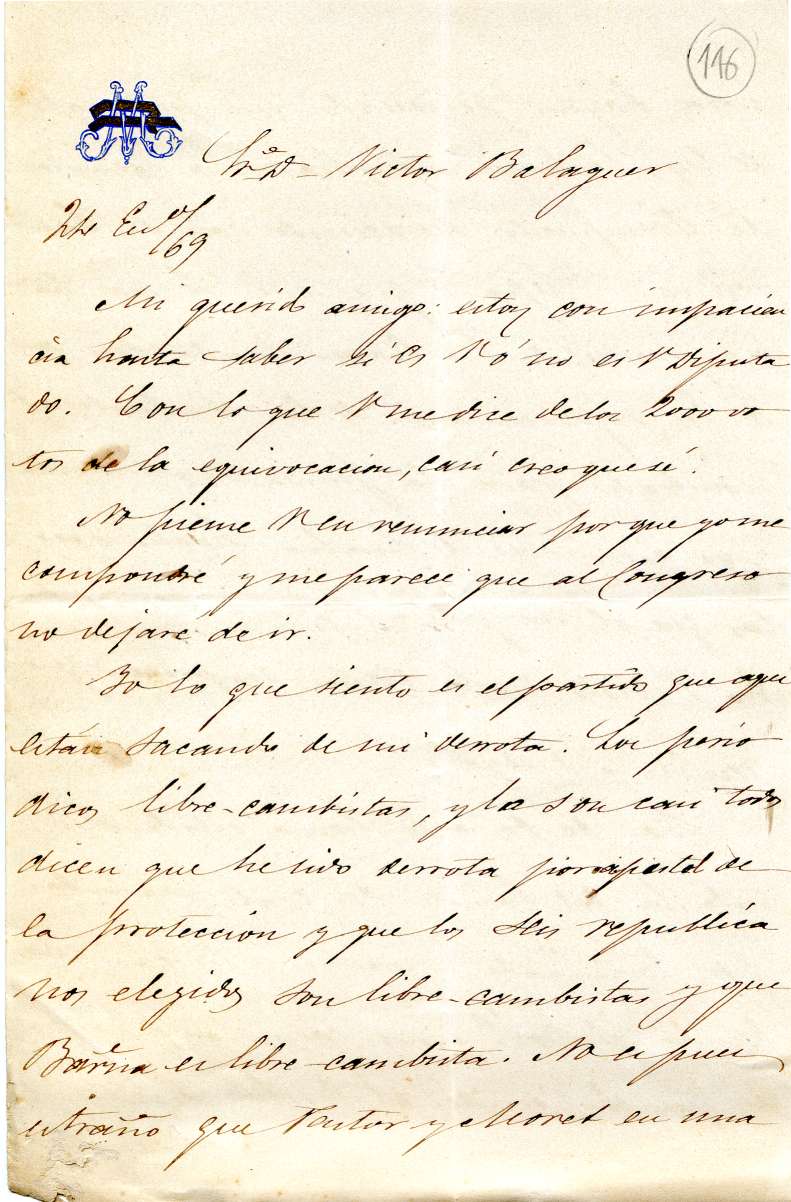 116
Sr. D. Victor Balaguer
24 Eno/69
Mi querido amigo: estoy con impacien
cia hasta saber si es V ó no es V Diputa
do. Con lo que V me dice de los 2000 vo
tos de la equivocacion, casi creo que sí.
No piense V en renunciar por que yo me
compondré y me parece que al Congreso
no dejaré de ir.
Yo lo que siento es el partido que aqui
están sacando de mi derrota. Los perió
dicos libre-cambistas, y lo son casi todos
dicen que he sido derrota por apostol de
la protección y que los seis republica
nos elegidos son libre-cambistas y que
Barna es libre-cambista. No es pues
estraño que Pastor y Moret en una